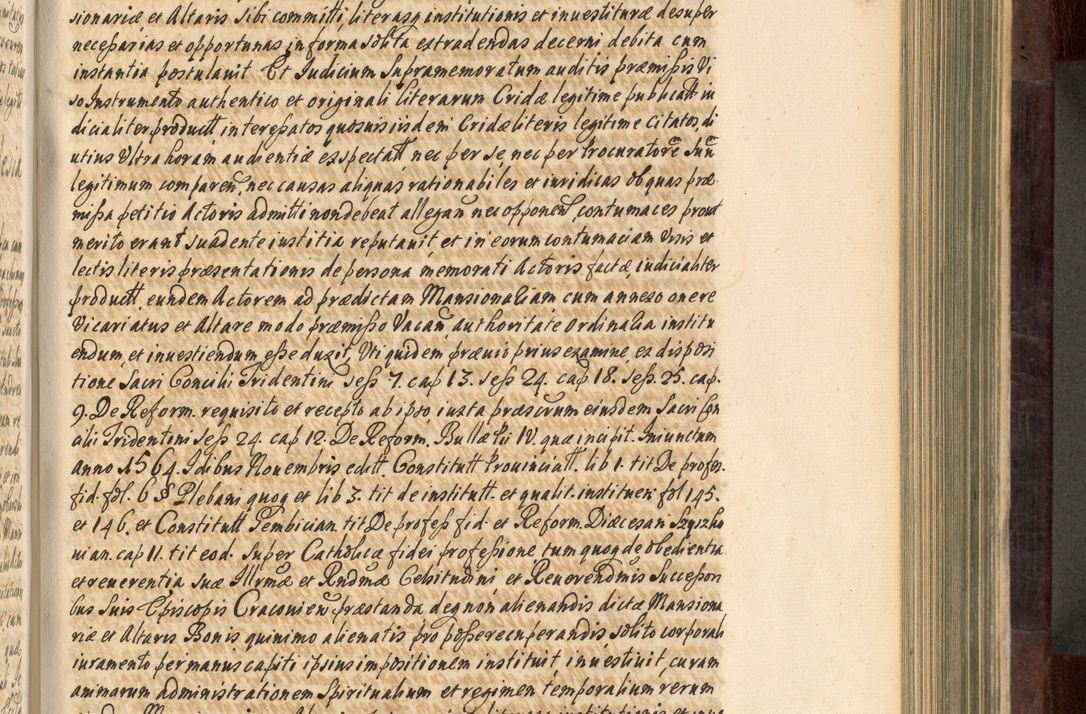 sionariæ et Altaris sibi committi, literasq institutionis et inuestituræ desuper
necessarias et opportunas in forma solita extradendas decerni debita cum
instantia postulauit Et Iudicium Supramemoratum auditis præmissis Vi
so Instrumento authentico et originali literarum Cridæ legitime publicatt iu
dicialiter productt interessatos quosuis iisdem Cridæ literis legitime Citatos, di
utius Ultra horam audientiæ exspectatt nec per se, nec per Procuratorē Suū
legitimum comparen̄. nec causas aliquas rationabiles et iuridicas ob quas præ
missa petitio Actoris admitti non debeat allegan̄ nec opponen̄, contumaces prout
merito erant suadente iustitia reputauit, et in eorum contumaciam Visis et
lectis literis præsentationis de persona memorati Actoris factæ, iudicialiter
productt. eundem Actorem ad prædictam Mansionariam cum annexo onere
Vicariatus et Altare modo præmisso Vacan̄ authoritate ordinaria institu
endum, et inuestiendum esse duxit, Uti quidem præuio prius examine, ex disposi
tione Sacri Concilii Tridentini Sess 7. cap 13. Sess 24. cap 18. Sess. 25. cap.
9. De Reform. requisito et recepto ab ipso, iuxta præscriptum eiusdem Sacri Con
cilii Tridentini Sess 24. cap 12. De Reform. Bullæ Pii IV. quæ incipit. Iniunctum
anno 1564. Idibus Nouembris editt. Constitutt Prouinciatt. lib 1. tit De profess.
fid. fol. 6 § Plebani quoq et lib 3. tit de institutt. et qualit. instituen: fol 145.
et 146. et Constitutt Pembician. tit De profess fid. et Reform. Diæcesan Szyszko
uian. cap 11. tit eod. super Catholicæ fidei professione tum quoq de obedientia
et reuerentia suæ Illrmæ et Rndmæ Celsitudini et Reuerendmis Successori
bus Suis Episcopis Cracouien̄ præstanda deq non alienandis dictæ Mansiona
riæ et Altaris Bonis quinimo alienatis pro posse recuperandis solito corporali
iuramento per manus capiti ipsius impositionem instituit inuestiuit, curam
animarum administrationem Spiritualium et regimen temporalium rerum